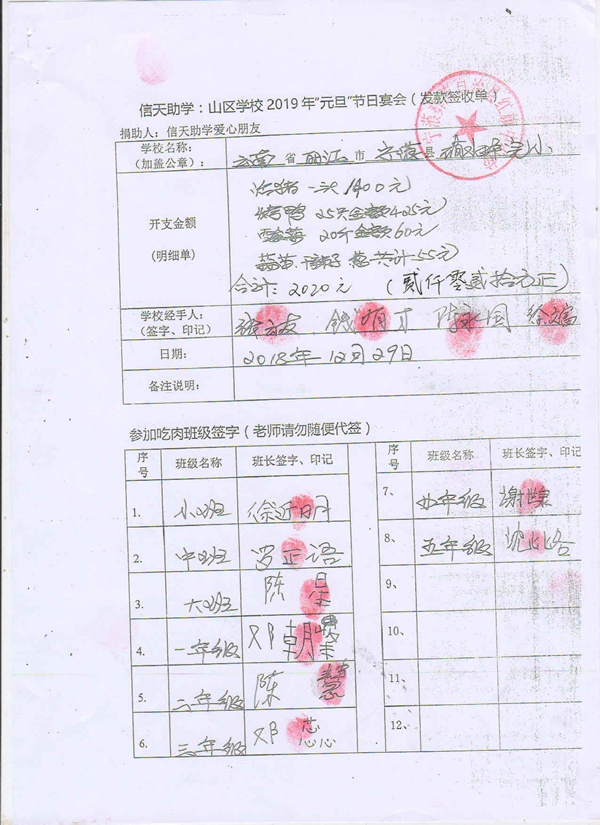 信天助学：山区学校2019年“元旦”节日宴会（发款签收单）
捐助人：信天助学爱心朋友
学校名称：
（加盖公章）：
云南省丽江市宁蒗县 完小
开支金额
（明细单）
1400元
烤鸭 25只金额425元
20斤金额60元
共计55元
合计：2020元 （贰仟零贰拾元正）
学校经手人：
（签字、印记）
日期：
2018年12月29日
备注说明：
参加吃肉班级签字（老师请勿随便代签）
序号 班级名称 班长签字、印记
1. 小班 徐近明
2. 中班 罗正语
3. 大班 陈
4. 一年级 邓朝
5. 二年级 陈慧
6. 三年级 邓蕊
序号 班级名称 班长签字、印记
7、 年级 谢
8、 五年级 沈
9、
10、
11、
12、